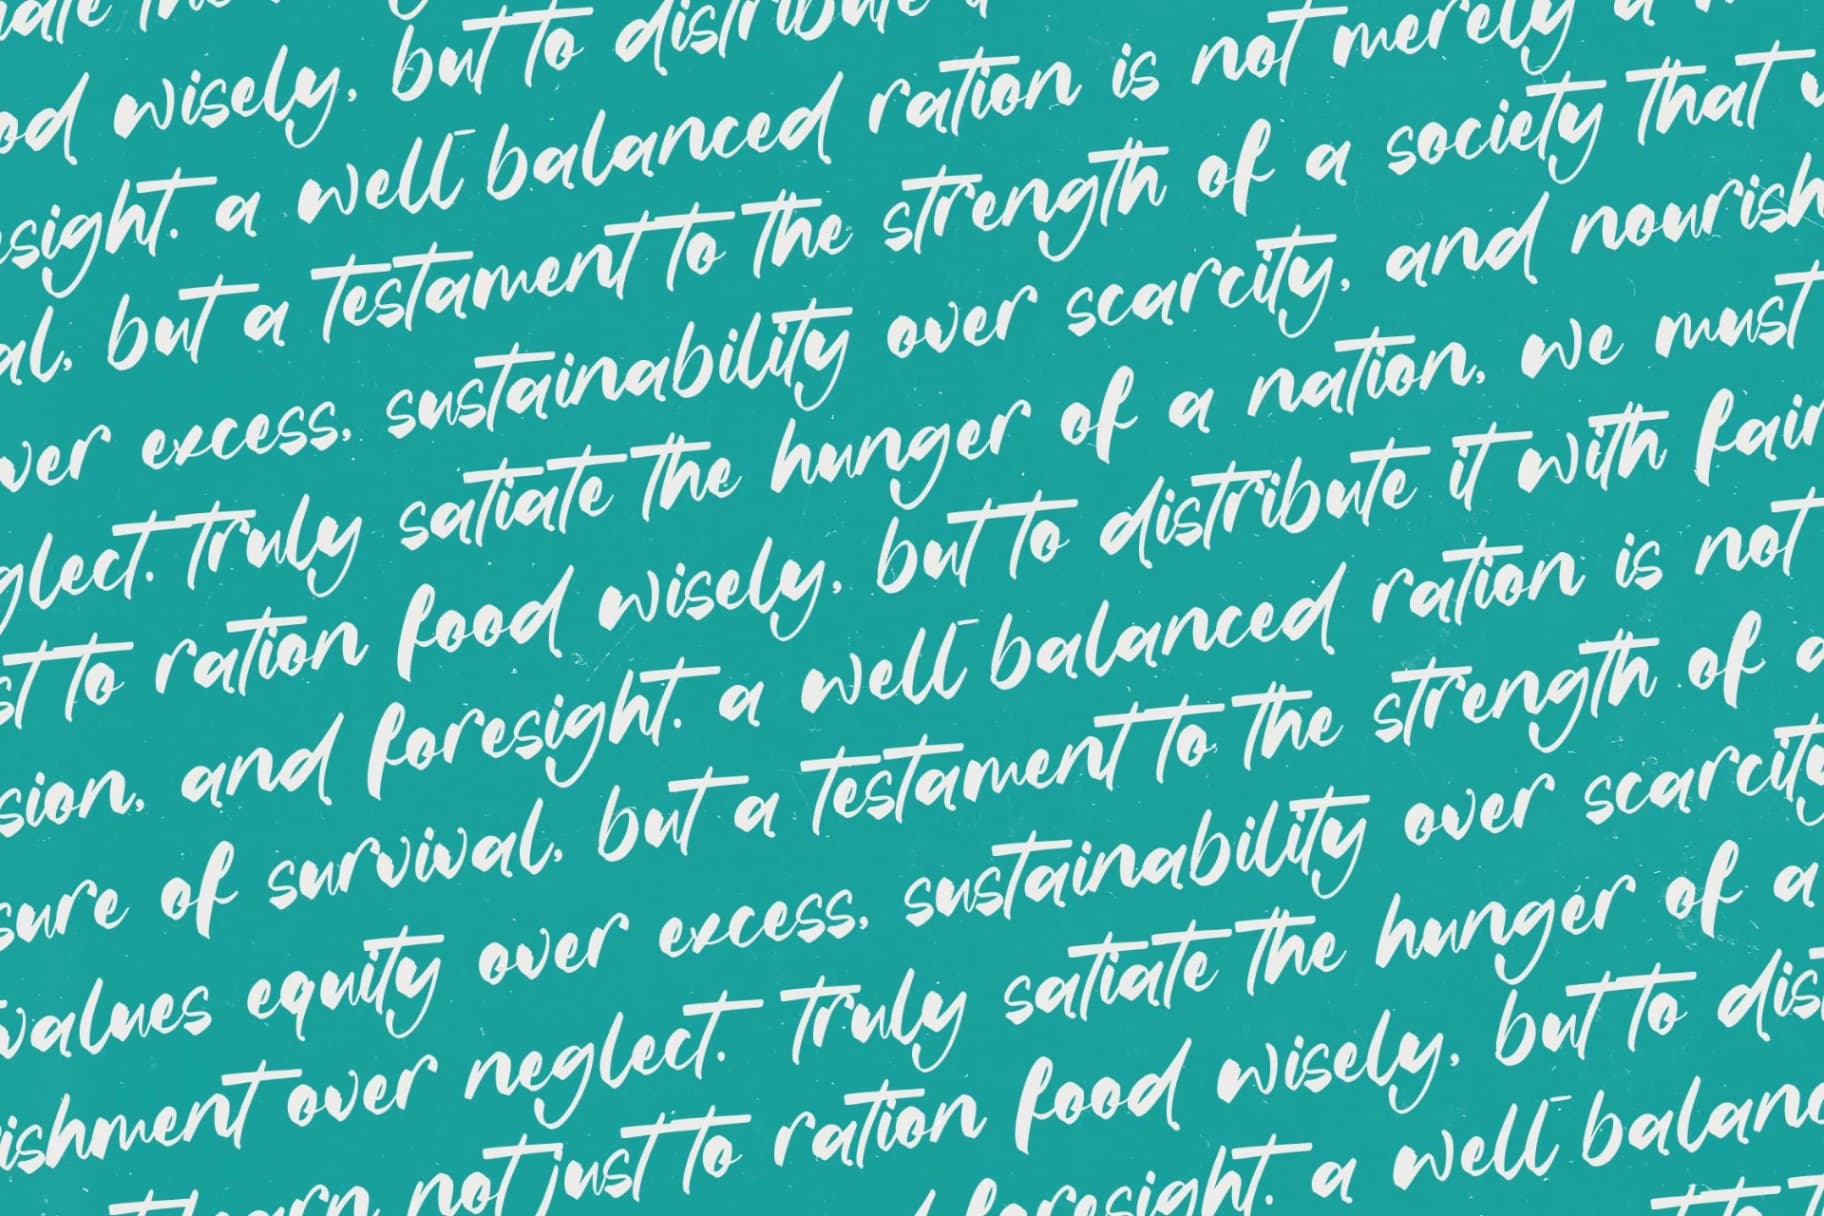 the
wisely, but to distribute
a well-balanced ration is not merely a
al, but a testament to the strength of a society that
over excess, sustainability over scarcity, and nourish
glect. truly satiate the hunger of a nation, we must
st to ration food wisely, but to distribute it with fair
sion, and foresight. a well-balanced ration is not
sure of survival, but a testament to the strength of a
values equity over excess, sustainability over scarcity
ishment over neglect. truly satiate the hunger of a
learn not just to ration food wisely, but to dis
foresight. a well-balanc